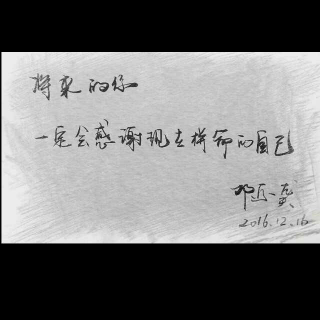 将来的你
一定会感谢现在拼命的自己
邓
2016.12.16